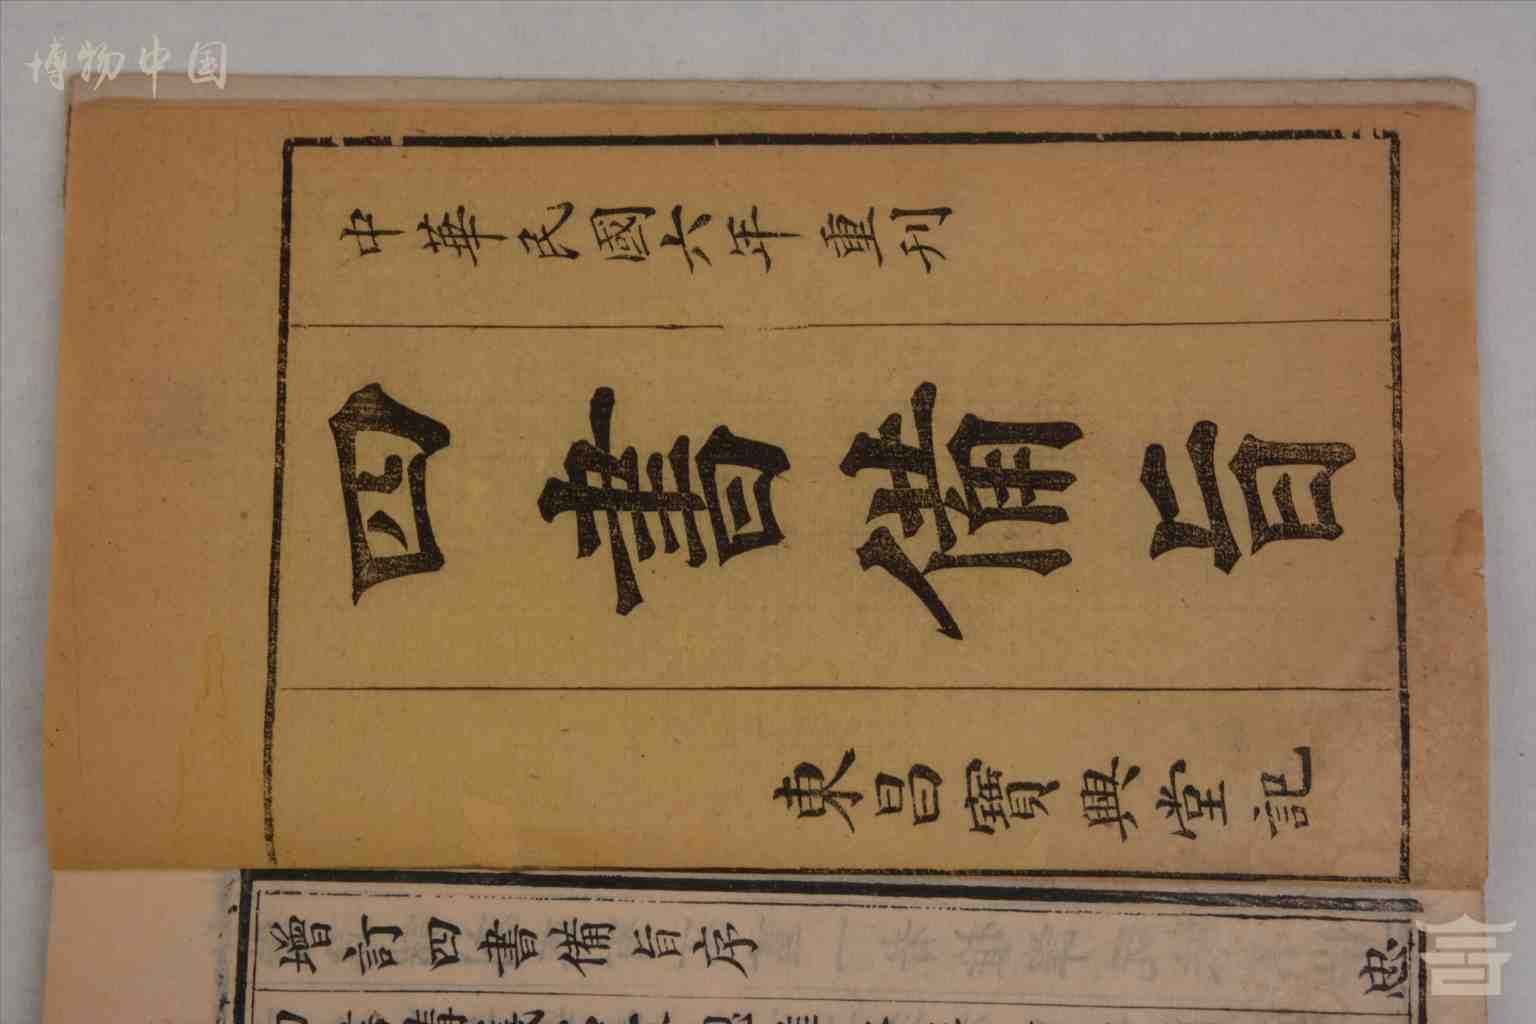 博物中国
中華民國六年重刋
四書備旨
東昌寶興堂記
增訂四書備旨序
忠